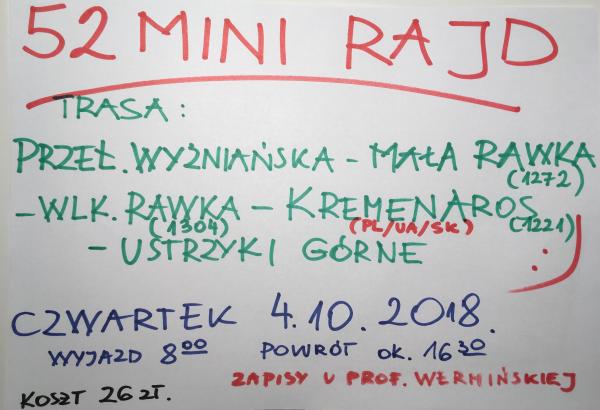 52 MINI RAJD
TRASA:
PRZEŁ. WYŻNIAŃSKA - MAŁA RAWKA
(1272)
- WLK. RAWKA - KREMENAROS
(1304) (PL/UA/SK) (1221)
- USTRZYKI GÓRNE :)
CZWARTEK 4.10.2018.
WYJAZD 8⁰⁰ POWRÓT OK. 16³⁰
ZAPISY U PROF. WERMIŃSKIEJ
KOSZT 26 ZŁ.